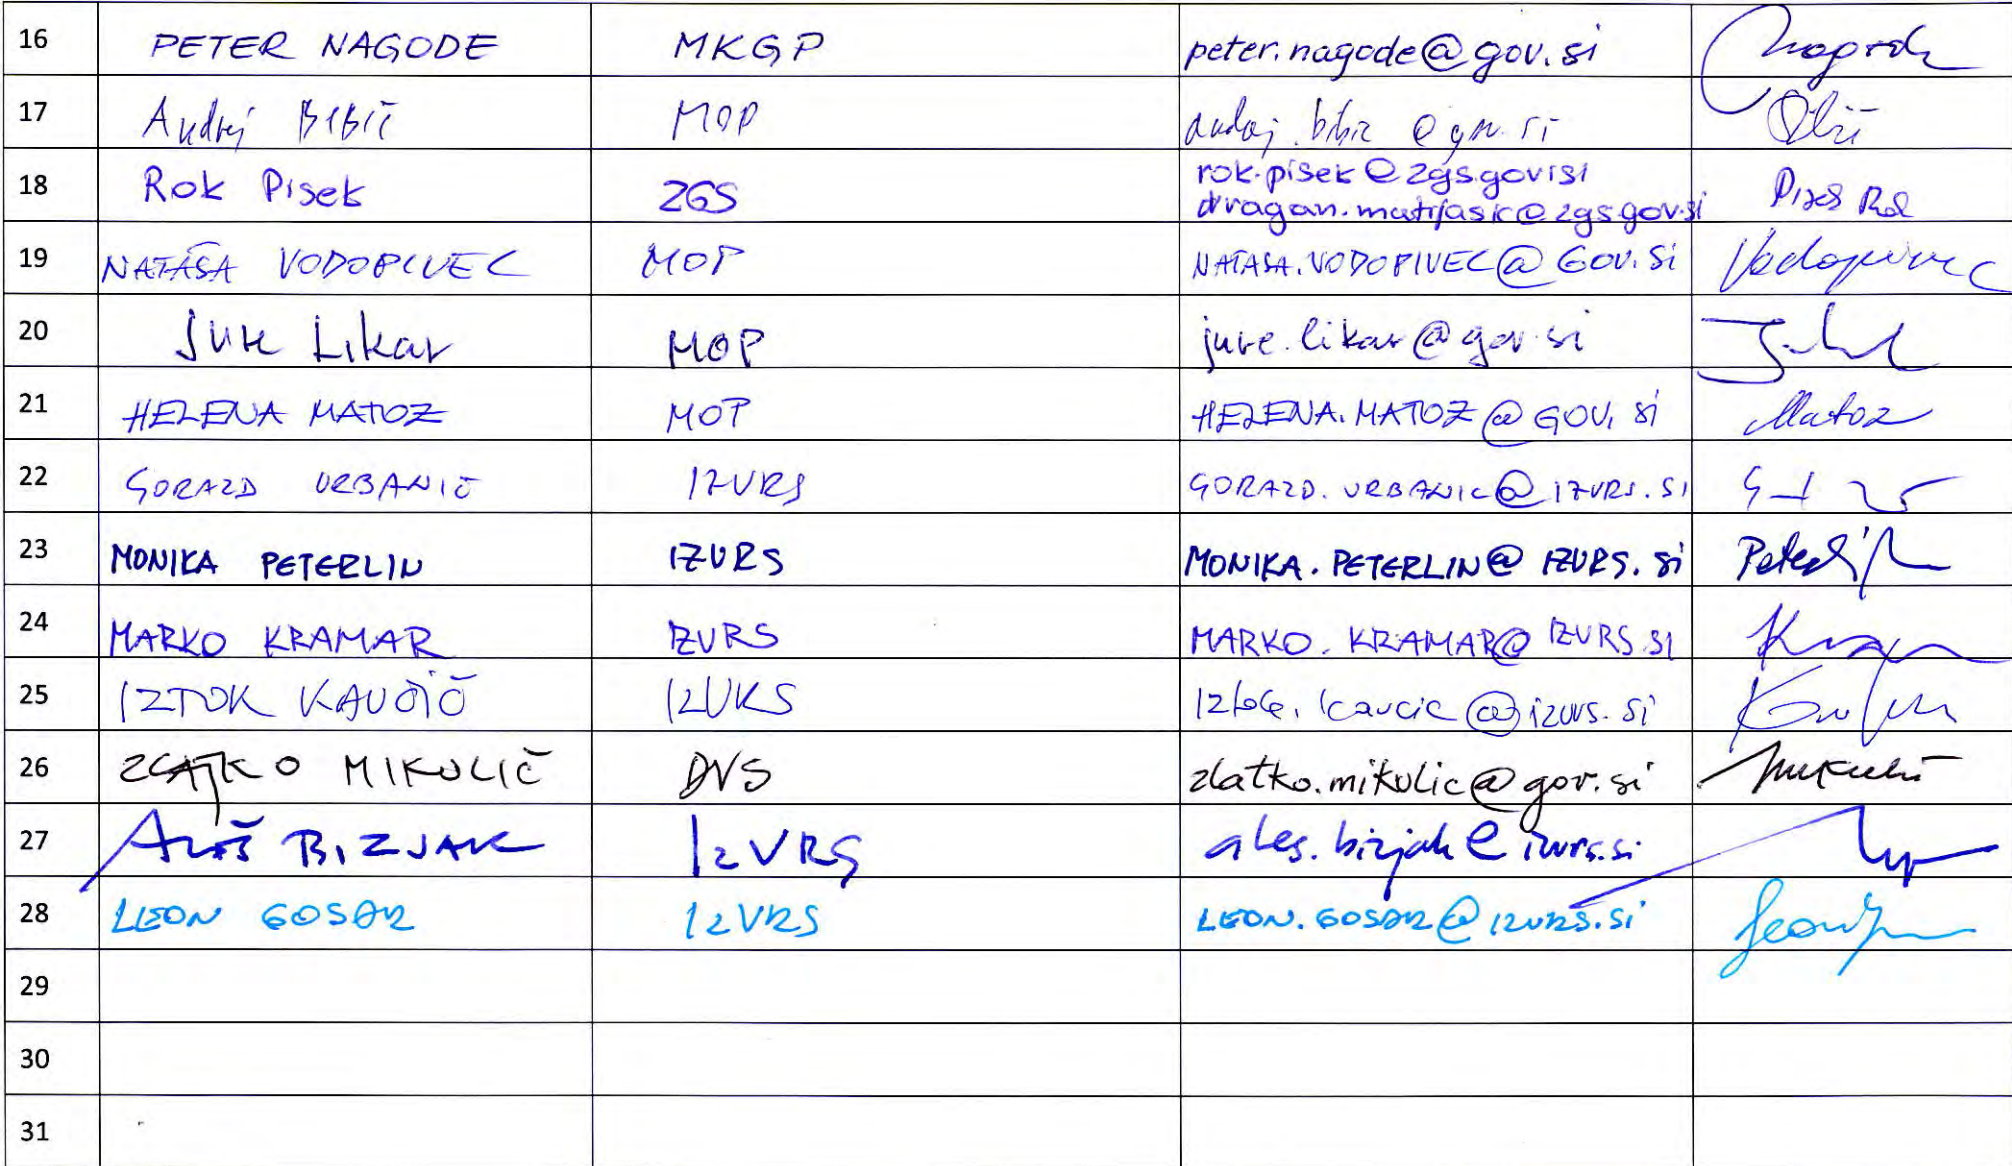 16 PETER NAGODE MKGP peter.nagode@gov.si
17 Andrej BIBIČ MOP
18 Rok Pisek ZGS rok.pisek@zgs.gov.si
dragan.matijasic@zgs.gov.si Pisek Rok
19 NATAŠA VODOPIVEC MOP NATASA.VODOPIVEC@GOV.SI Vodopivec
20 Jure Likar MOP jure.likar@gov.si
21 HELENA MATOZ MOP HELENA.MATOZ@GOV.SI Matoz
22 GORAZD URBANIČ IZVRS GORAZD.URBANIC@IZVRS.SI
23 MONIKA PETERLIN IZVRS MONIKA.PETERLIN@IZVRS.si
24 MARKO KRAMAR IZVRS MARKO.KRAMAR@IZVRS.SI
25 IZTOK KAVČIČ IZVRS
26 ZLATKO MIKULIČ DVS zlatko.mikulic@gov.si
27 ALEŠ BIZJAK IZVRS ales.bizjak@izvrs.si
28 LEON GOSAR IZVRS LEON.GOSAR@IZVRS.Si
29
30
31